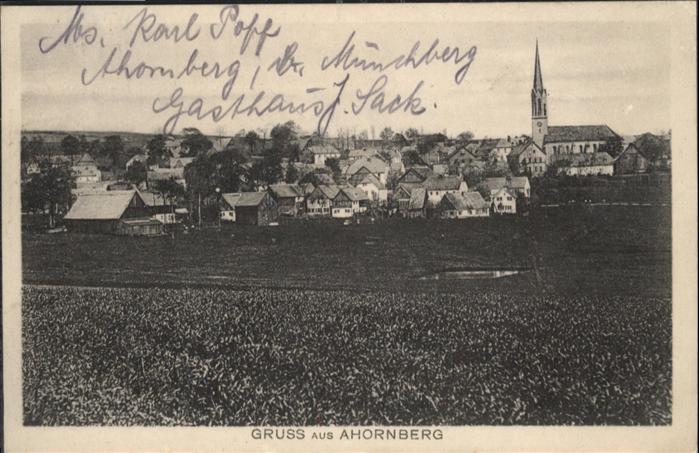 Abs. Karl Popp
Ahornberg, Br. Münchberg
Gasthaus z. Sack.
GRUSS AUS AHORNBERG